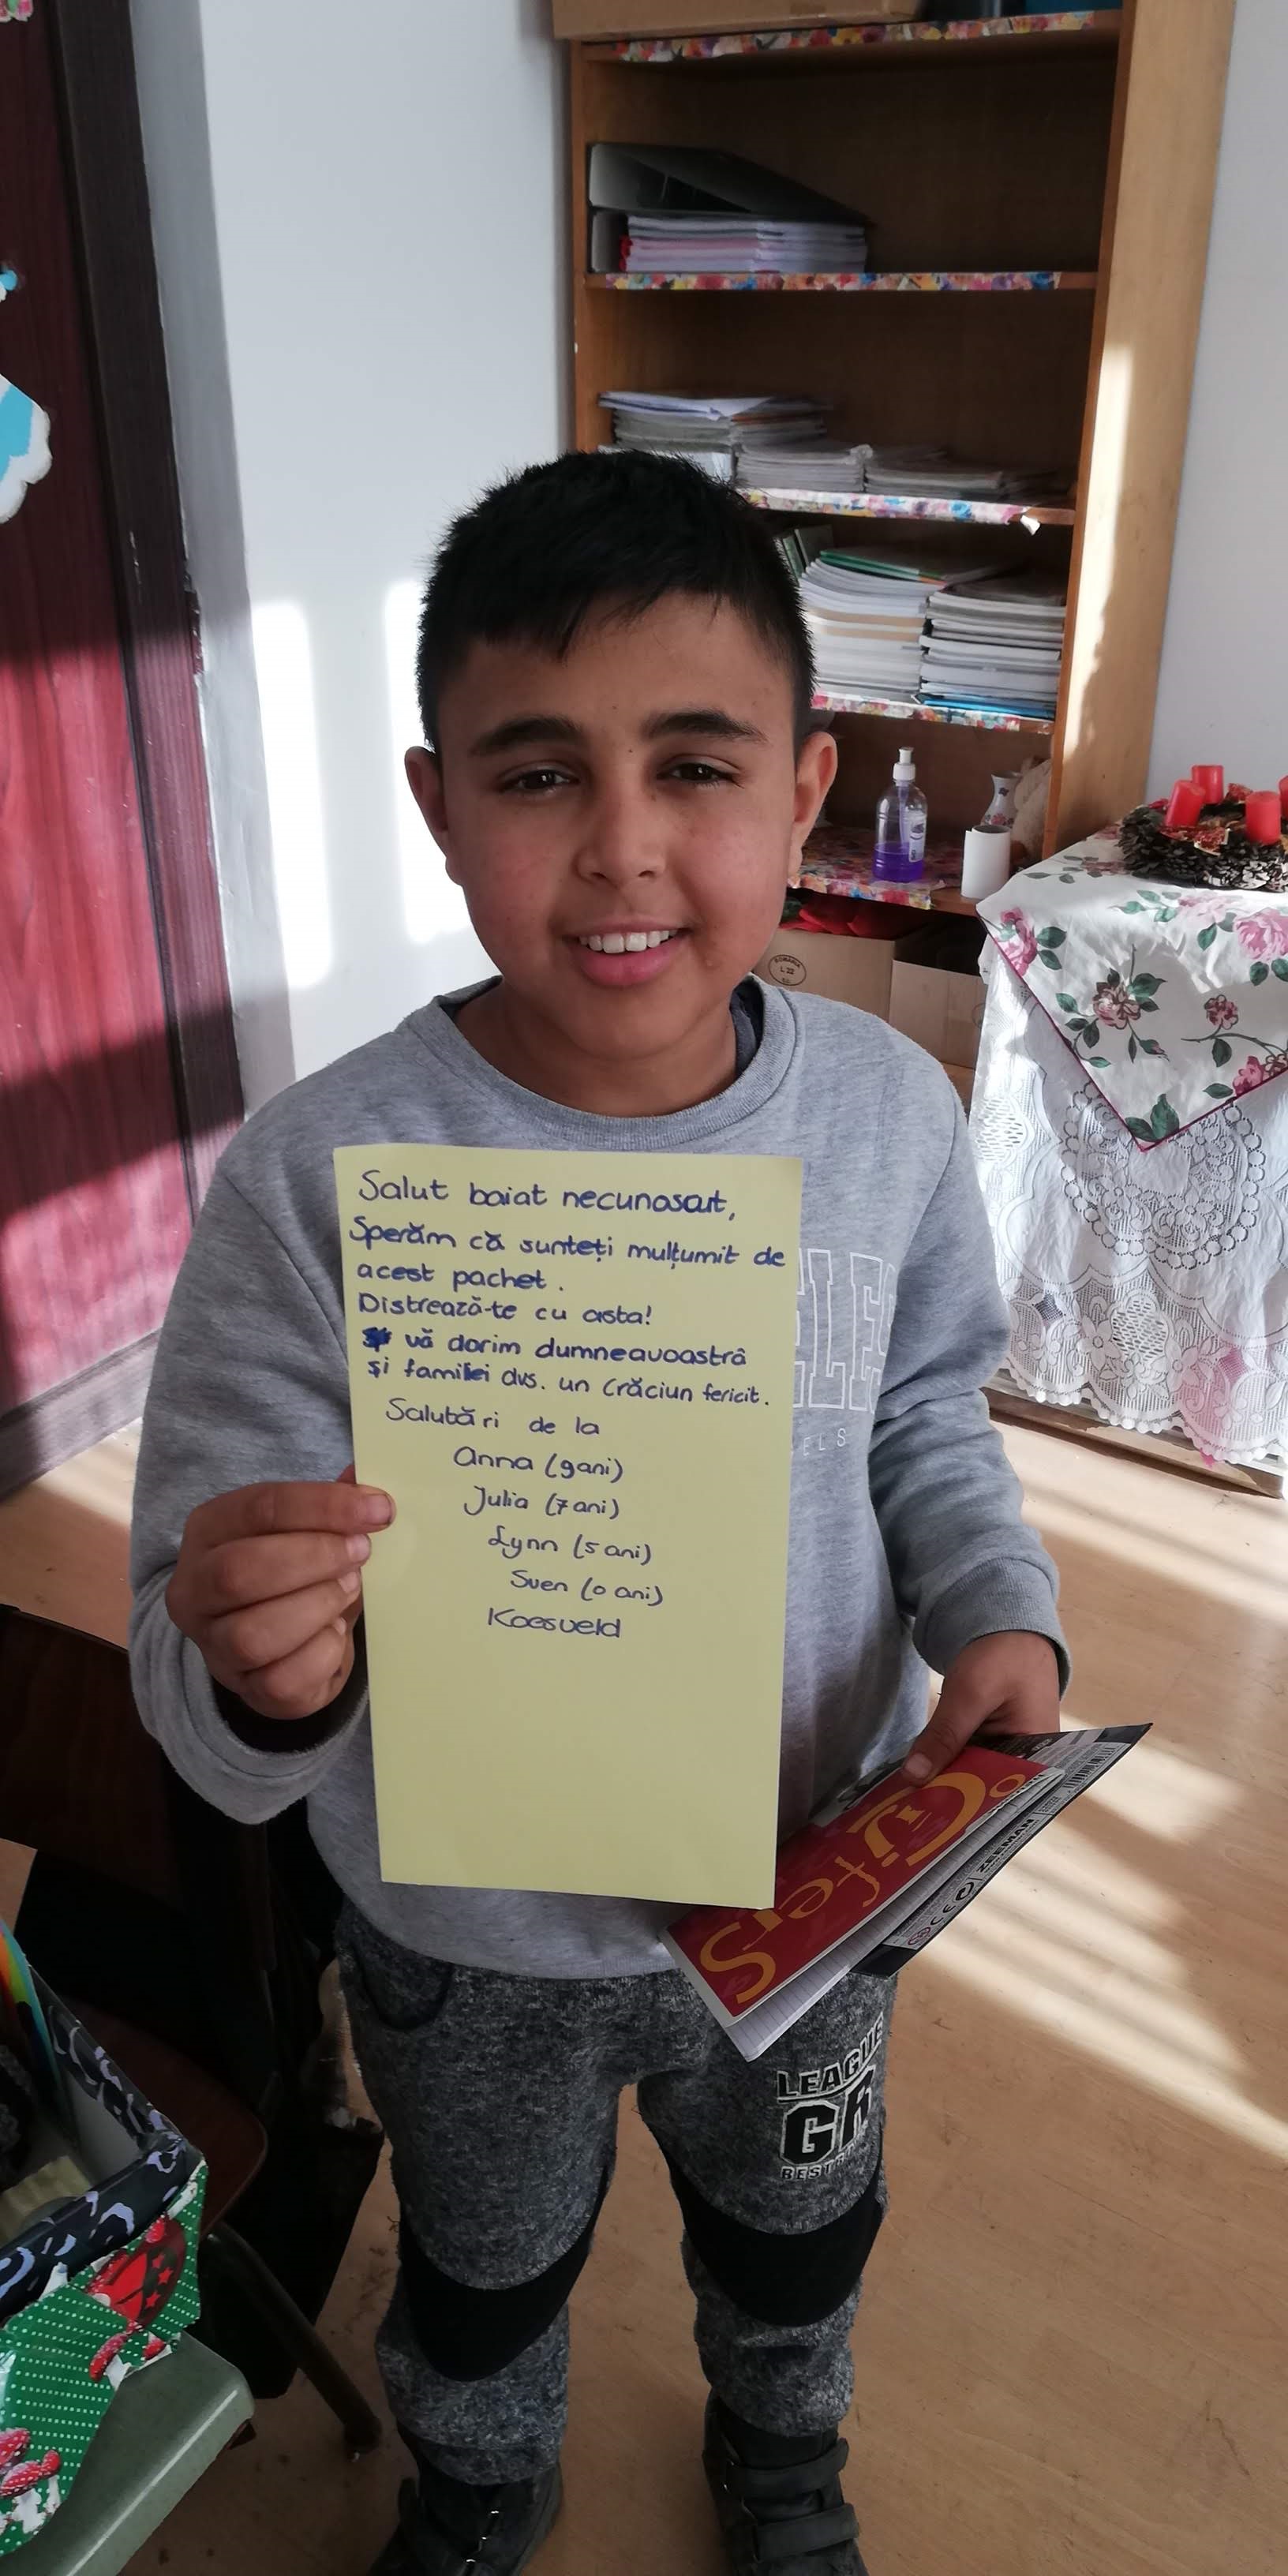 Salut baiat necunoscut,
Sperăm că sunteți mulțumit de
acest pachet.
Distrează-te cu asta!
vă dorim dumneavoastră
și familiei dvs. un Crăciun fericit.
Salutări de la
Anna (9 ani)
Julia (7 ani)
Lynn (5 ani)
Sven (0 ani)
Koesveld
Cijfers
ZEEMAN
LEAGUE
GR
ROMANIA
L 22